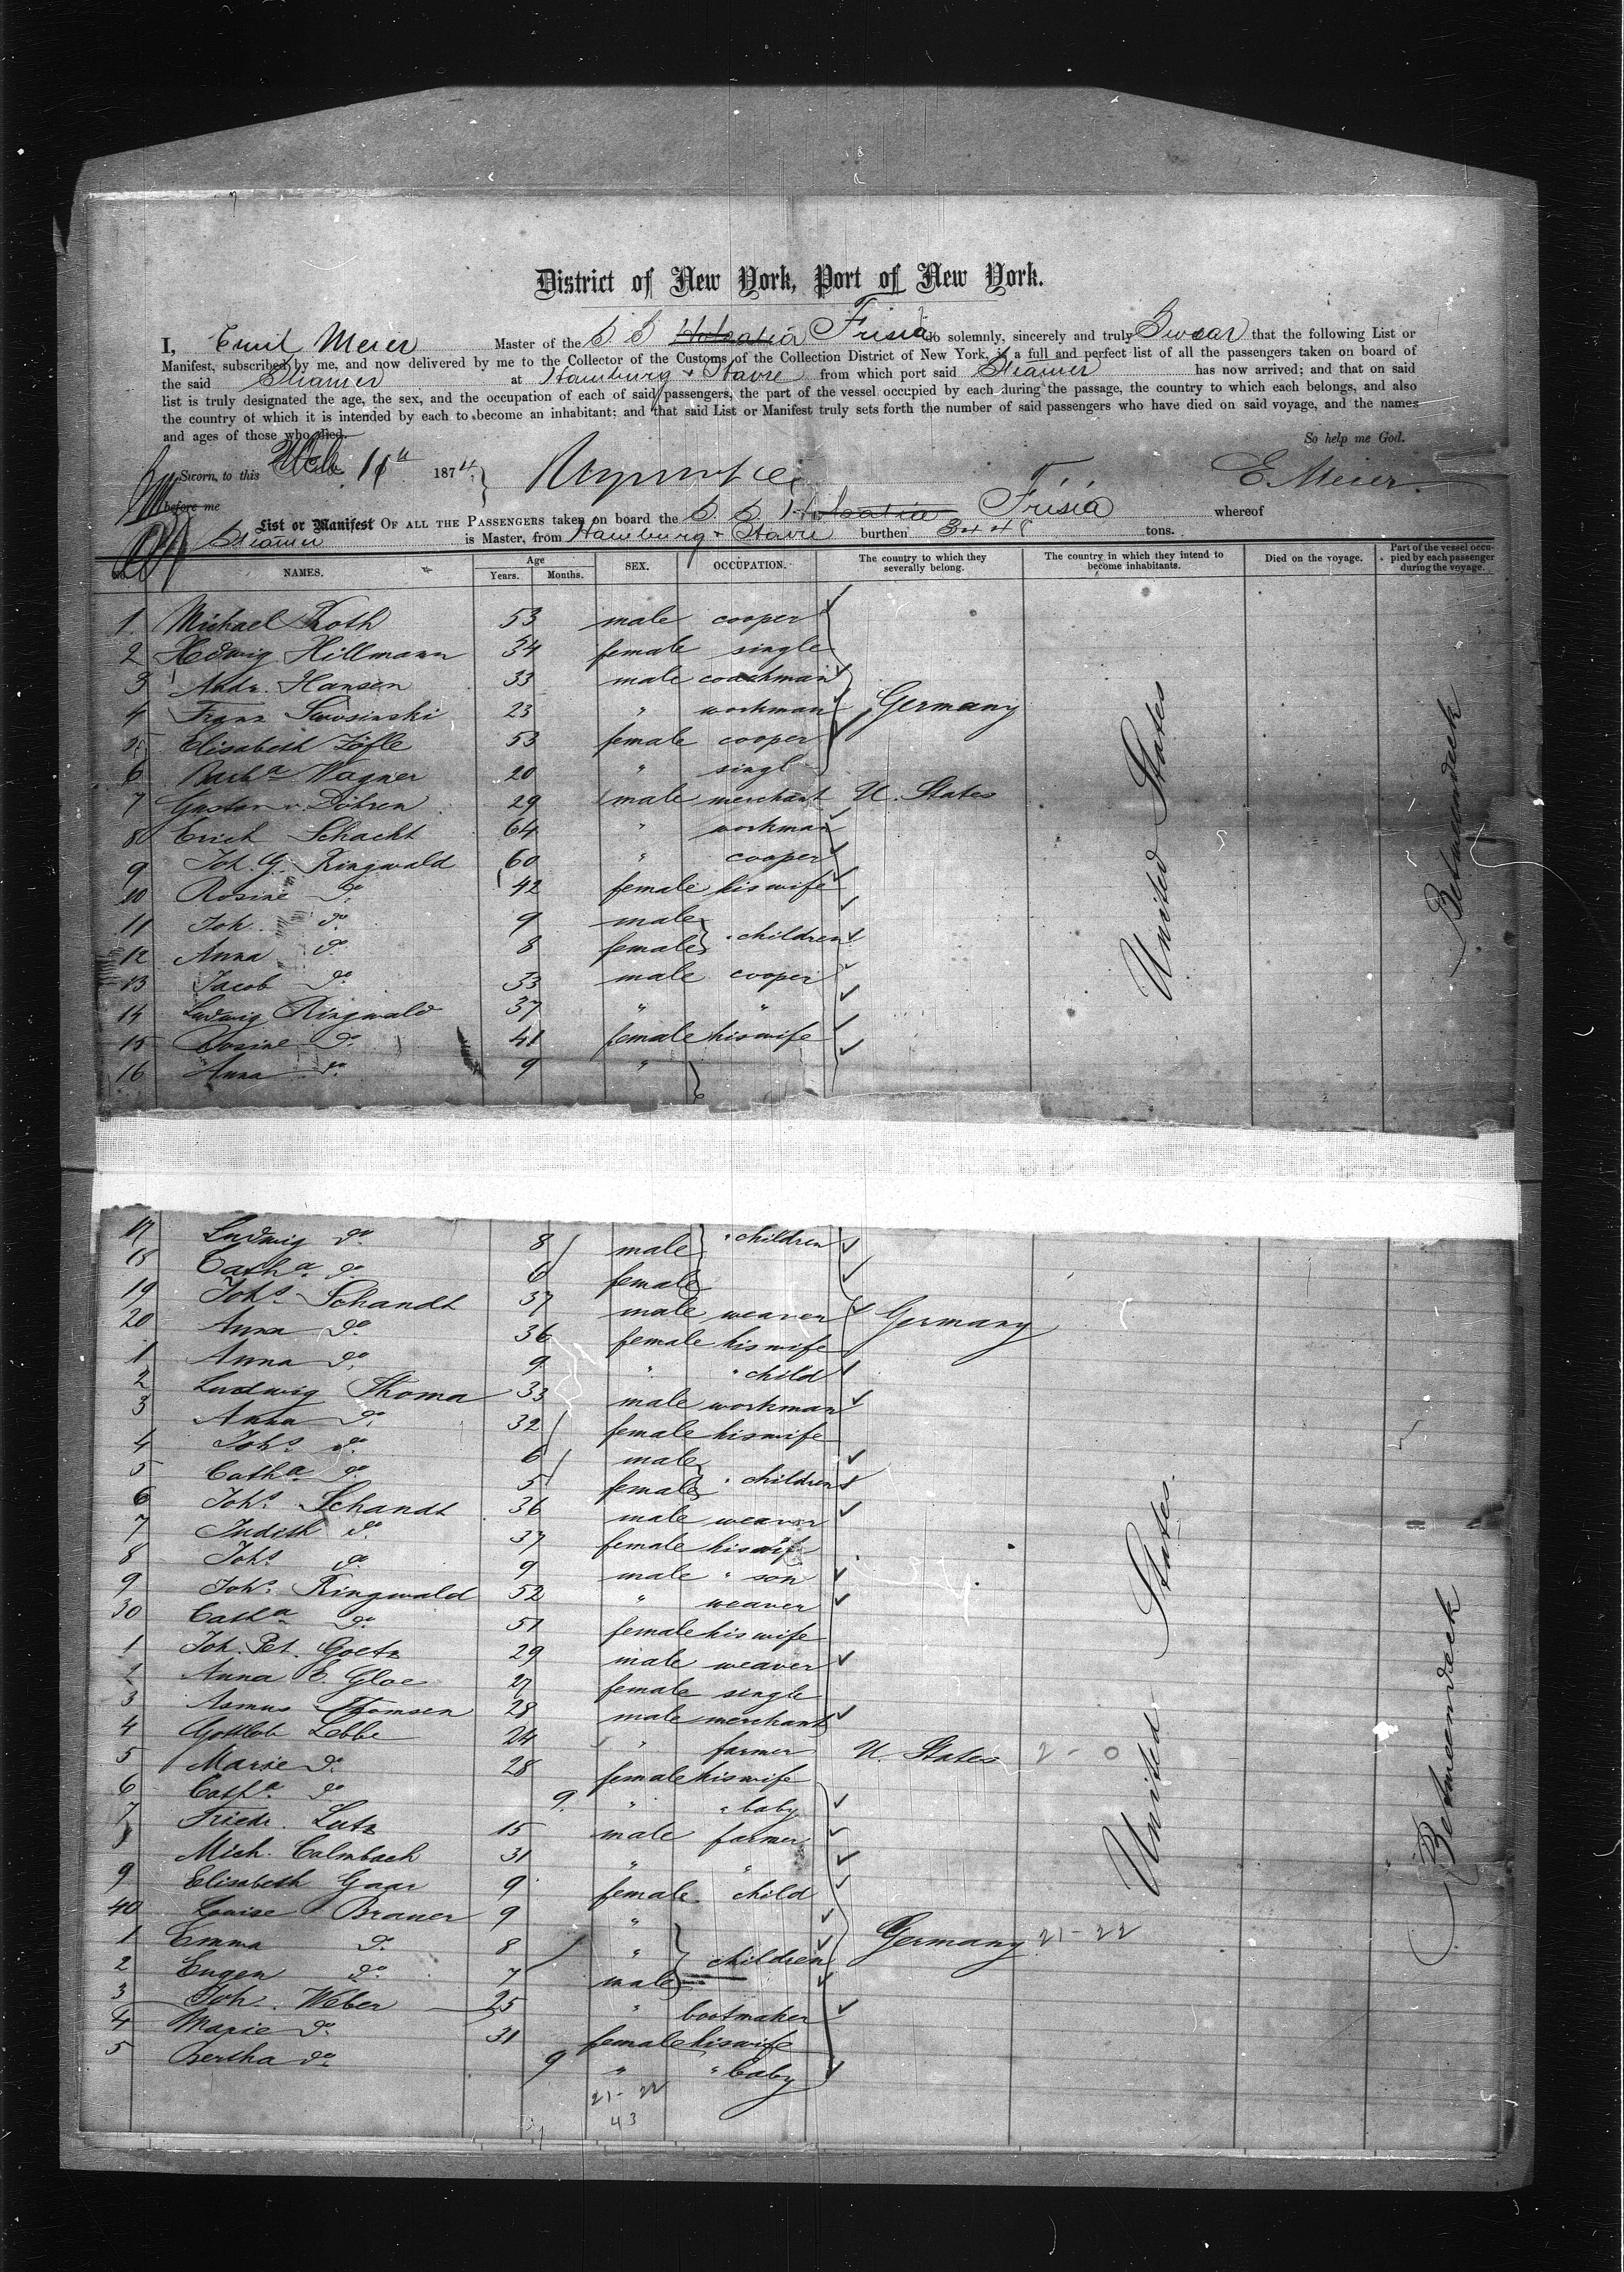 District of New York, Port of New York.
I, Emil Meier Master of the S S Holsatia Frisia do solemnly, sincerely and truly Swear that the following List or
Manifest, subscribed by me, and now delivered by me to the Collector of the Customs of the Collection District of New York, is a full and perfect list of all the passengers taken on board of
the said Steamer at Hamburg + Havre from which port said Steamer has now arrived; and that on said
list is truly designated the age, the sex, and the occupation of each of said passengers, the part of the vessel occupied by each during the passage, the country to which each belongs, and also
the country of which it is intended by each to become an inhabitant; and that said List or Manifest truly sets forth the number of said passengers who have died on said voyage, and the names
and ages of those who died. So help me God.
Sworn, to this 11th 1874 E. Meier
before me
List or Manifest OF ALL THE PASSENGERS taken on board the S S Holsatia Frisia whereof
Steamer is Master, from Hamburg + Havre burthen 344 tons.
No. NAMES. Age Years. Months. SEX. OCCUPATION. The country to which they severally belong. The country in which they intend to become inhabitants. Died on the voyage. Part of the vessel occupied by each passenger during the voyage.
1 Michael Koth 53 male cooper
2 Hedwig Hillmann 34 female single
3 Andr. Hansen 33 male coachman
4 Franz Swosinski 23 " workman Germany
5 Elisabeth Zöfle 53 female cooper
6 Barba Wagner 20 " singl
7 Gustav v. Döhren 29 male merchant U. States
8 Erich Schacht 64 " workman
9 Joh. G. Ringwald 60 " cooper
10 Rosine do 42 female his wife
11 Joh. do 9 male
12 Anna do 8 female " children
13 Jacob do 33 male cooper
14 Ludwig Ringwald 37 " "
15 Rosine do 41 female his wife
16 Anna do 9 "
United States
Betweendeck
17 Ludwig do 8 male " children
18 Catha do 6 female
19 Johs. Schandt 37 male weaver Germany
20 Anna do 36 female his wife
1 Anna do 9 " " child
2 Ludwig Thoma 33 male workman
3 Anna do 32 female his wife
4 Johs. do 6 male
5 Catha do 5 female " children
6 Johs. Schandt 36 male weaver
7 Judith do 37 female his wife
8 Johs do 9 male " son
9 Johs. Ringwald 52 " weaver
30 Catha do 51 female his wife
1 Joh. Pet. Goetz 29 male weaver
2 Anna C. Gloe 27 female single
3 Asmus Thomsen 28 male merchant
4 Gottlob Lebbe 24 " farmer U. States 2 - 0
5 Marie do 28 female his wife
6 Catha do 9 " " baby
7 Friedr. Lutz 15 male farmer
8 Mich. Calmbach 31 " "
9 Elisabeth Gaar 9 female child
40 Louise Brauer 9 "
1 Emma do 8 " children Germany 21-22
2 Eugen do 7 male
3 Joh. Weber 25 " bootmaker
4 Marie do 31 female his wife
5 Bertha do 9 " " baby
21-22
43
United States
Betweendeck